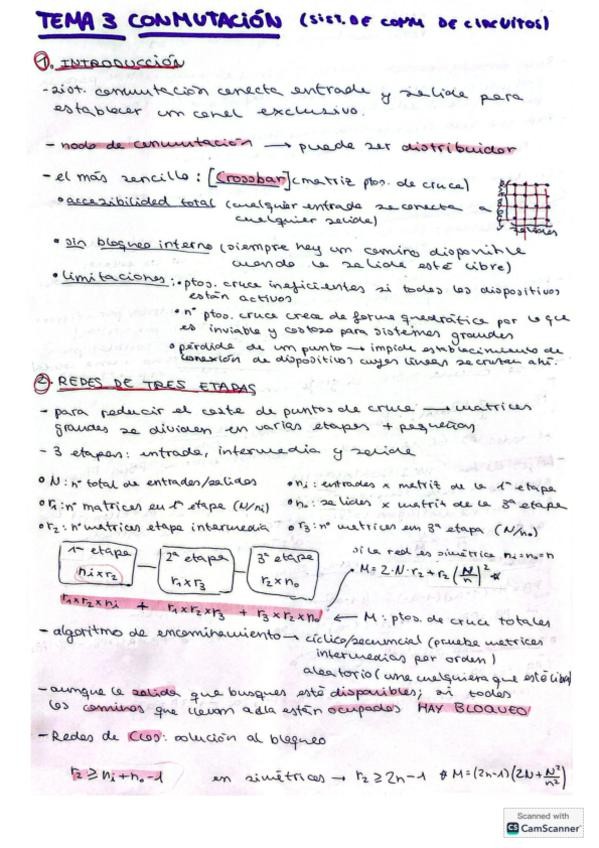 TEMA 3 CONMUTACIÓN (SIST. DE COMM DE CIRCUITOS)
1. INTRODUCCIÓN
- sist. conmutación conecta entrada y salida para
establecer un canal exclusivo.
- nodo de conmutación → puede ser distribuidor
- el más sencillo: [Crossbar] (matriz ptos. de cruce)
• accesibilidad total (cualquier entrada se conecta a
cualquier salida)
• sin bloqueo interno (siempre hay un camino disponible
cuando la salida esté libre)
• limitaciones: • ptos. cruce ineficientes si todos los dispositivos
están activos
• nº ptos. cruce crece de forma cuadrática por lo que
es inviable y costoso para sistemas grandes
• pérdida de un punto → impide establecimiento de
conexión de dispositivos cuyas líneas se crucan ahí.
2. REDES DE TRES ETAPAS
- para reducir el coste de puntos de cruce → matrices
grandes se dividen en varias etapas + pequeñas
- 3 etapas: entrada, intermedia y salida
• N: nº total de entradas/salidas • ni: entradas x matriz de la 1ª etapa
• r1: nº matrices en 1ª etapa (N/ni) • no: salidas x matriz de la 3ª etapa
• r2: nº matrices etapa intermedia • r3: nº matrices en 3ª etapa (N/no)
1ª etapa 2ª etapa 3ª etapa si la red es simétrica ni=no=n
ni x r2 r1 x r3 r2 x no M = 2·N·r2 + r2 (N/n)² *
r1 x r2 x ni + r1 x r2 x r3 + r3 x r2 x no ← M: ptos. de cruce totales
- algoritmo de encaminamiento → cíclico/secuencial (prueba matrices
intermedias por orden)
aleatorio (una cualquiera que esté libre)
- aunque la salida que busques esté disponibles; si todos
los caminos que llevan a ella están ocupados HAY BLOQUEO
- Redes de Clos: solución al bloqueo
r2 ≥ ni + no - 1 en simétricas → r2 ≥ 2n - 1 * M = (2n-1)(2N + N²/n²)
Scanned with
CS CamScanner